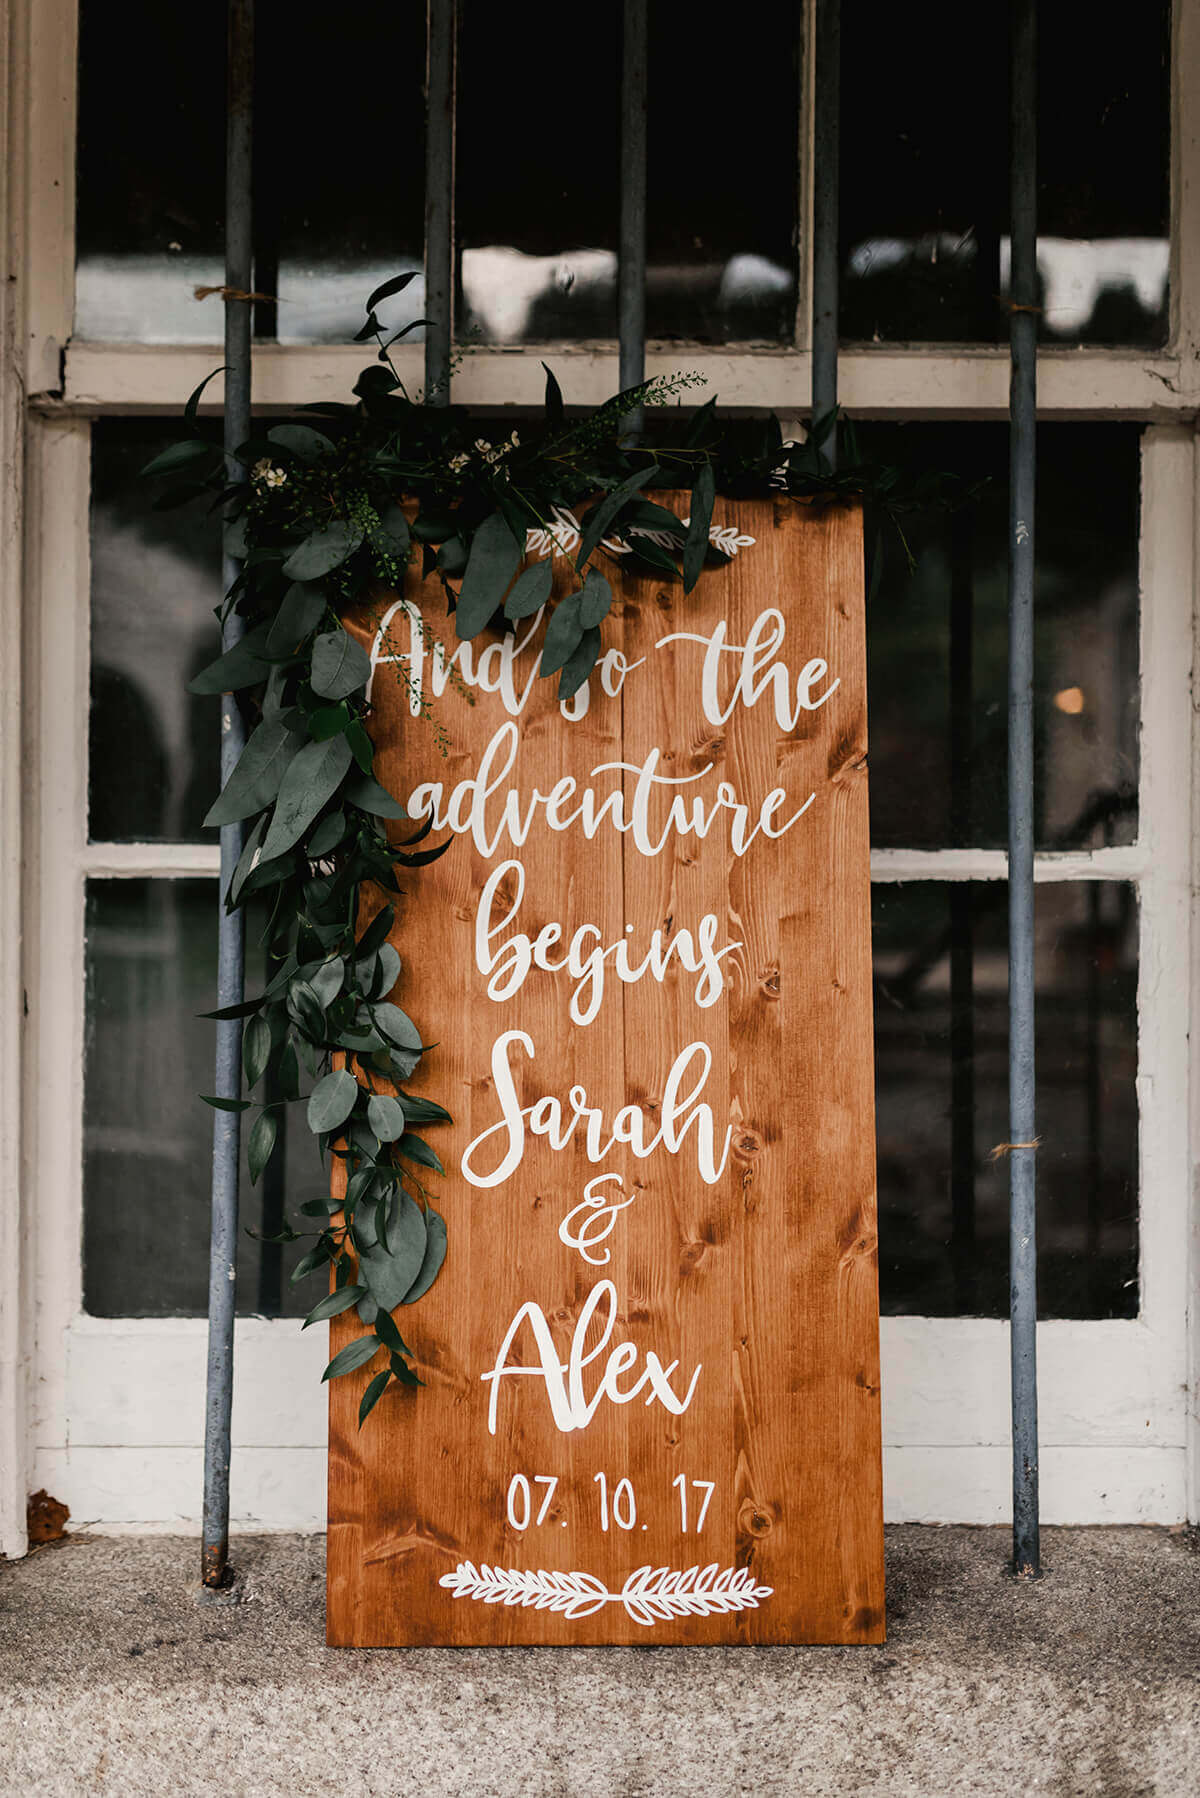 And so the
adventure
begins
Sarah
&
Alex
07. 10. 17